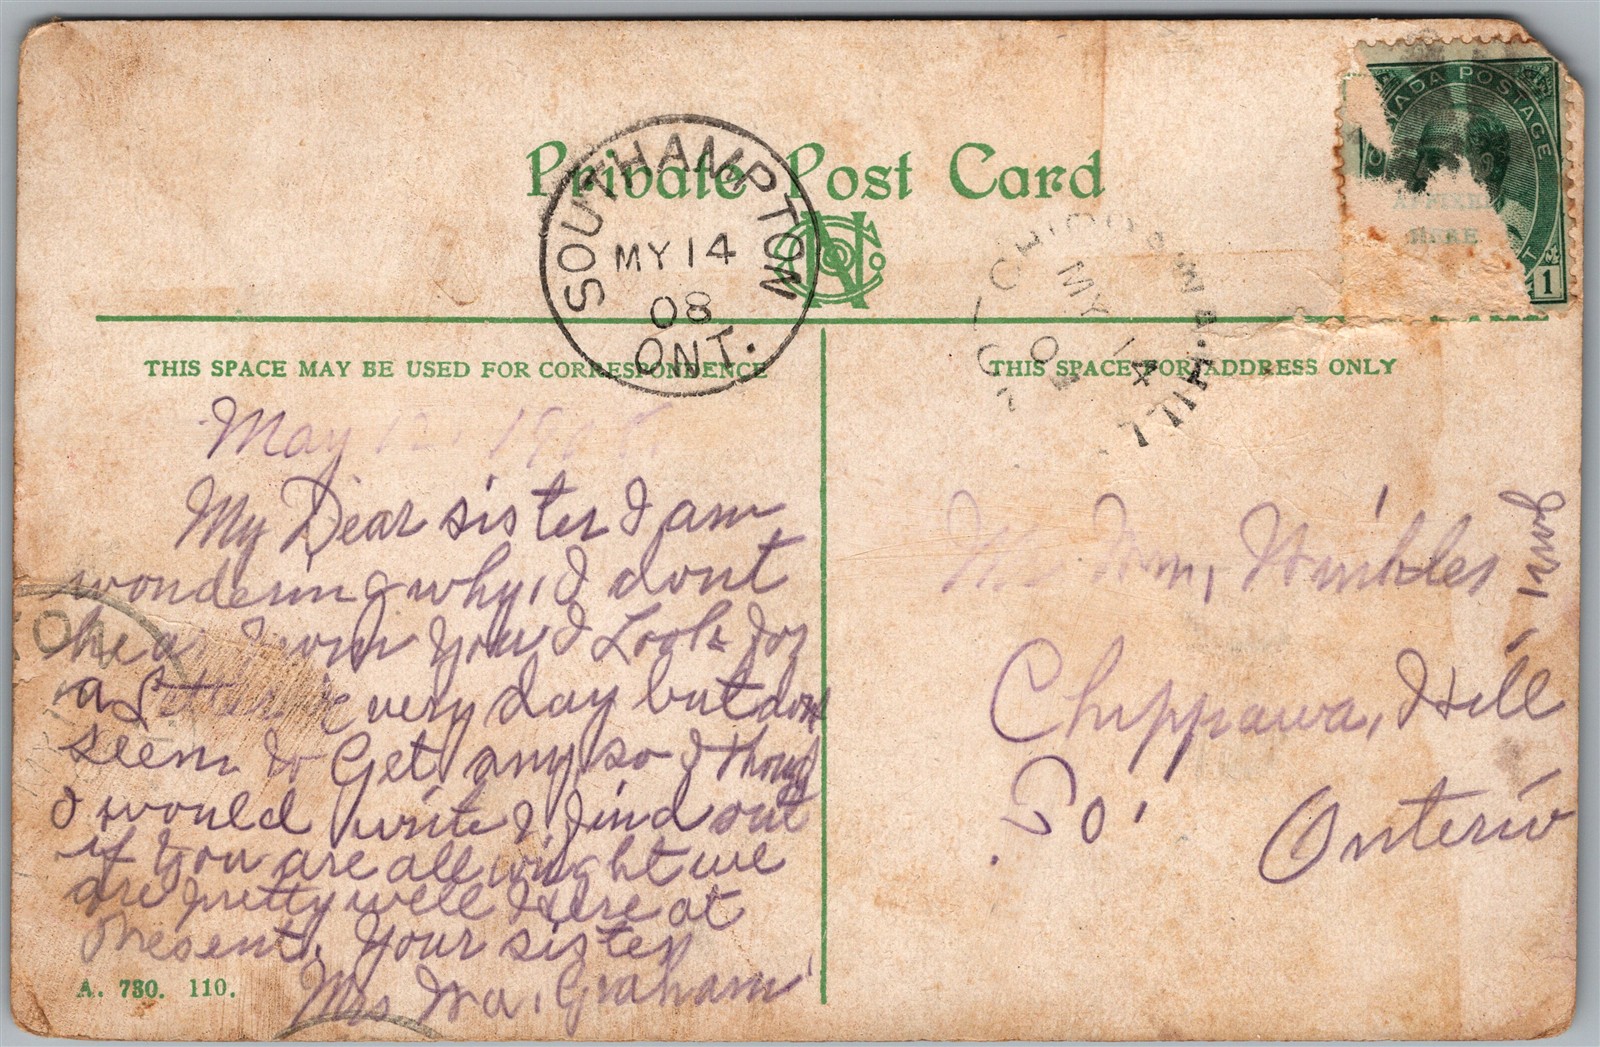 Private Post Card
CANADA POSTAGE
HERE
1
SOUTHAMPTON
MY 14
08
ONT.
MY 14
0
HILL
THIS SPACE MAY BE USED FOR CORRESPONDENCE
THIS SPACE FOR ADDRESS ONLY
May 12. 1908.
My Dear sister I am
wondering why, I dont
hear from You I Look for
a every day but dont
seem to Get any so I though
I would write & find out
if You are all wright we
are pretty well Here at
Present, Your sister
Mrs Graham
A. 730. 110.
Wm,
Chippawa, Hill
Po.
Onterio